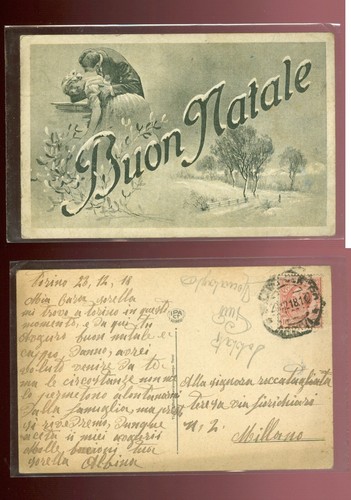 Buon Natale
Torino 23, 12, 18
Mia cara sorella
mi trovo a torino in questi
momenti, e da qui ti
Auguro buon natale e
capo d'anno, avrei
voluto venire da te
ma le circostanze non me
le permettono
dalla famiglia, ma presto
ci rivedremo, dunque
accetta i miei auguri
Mille bacioni tua
sorella Albina
Alla signora
teresa via fiorichiari
N. 2.
Millano